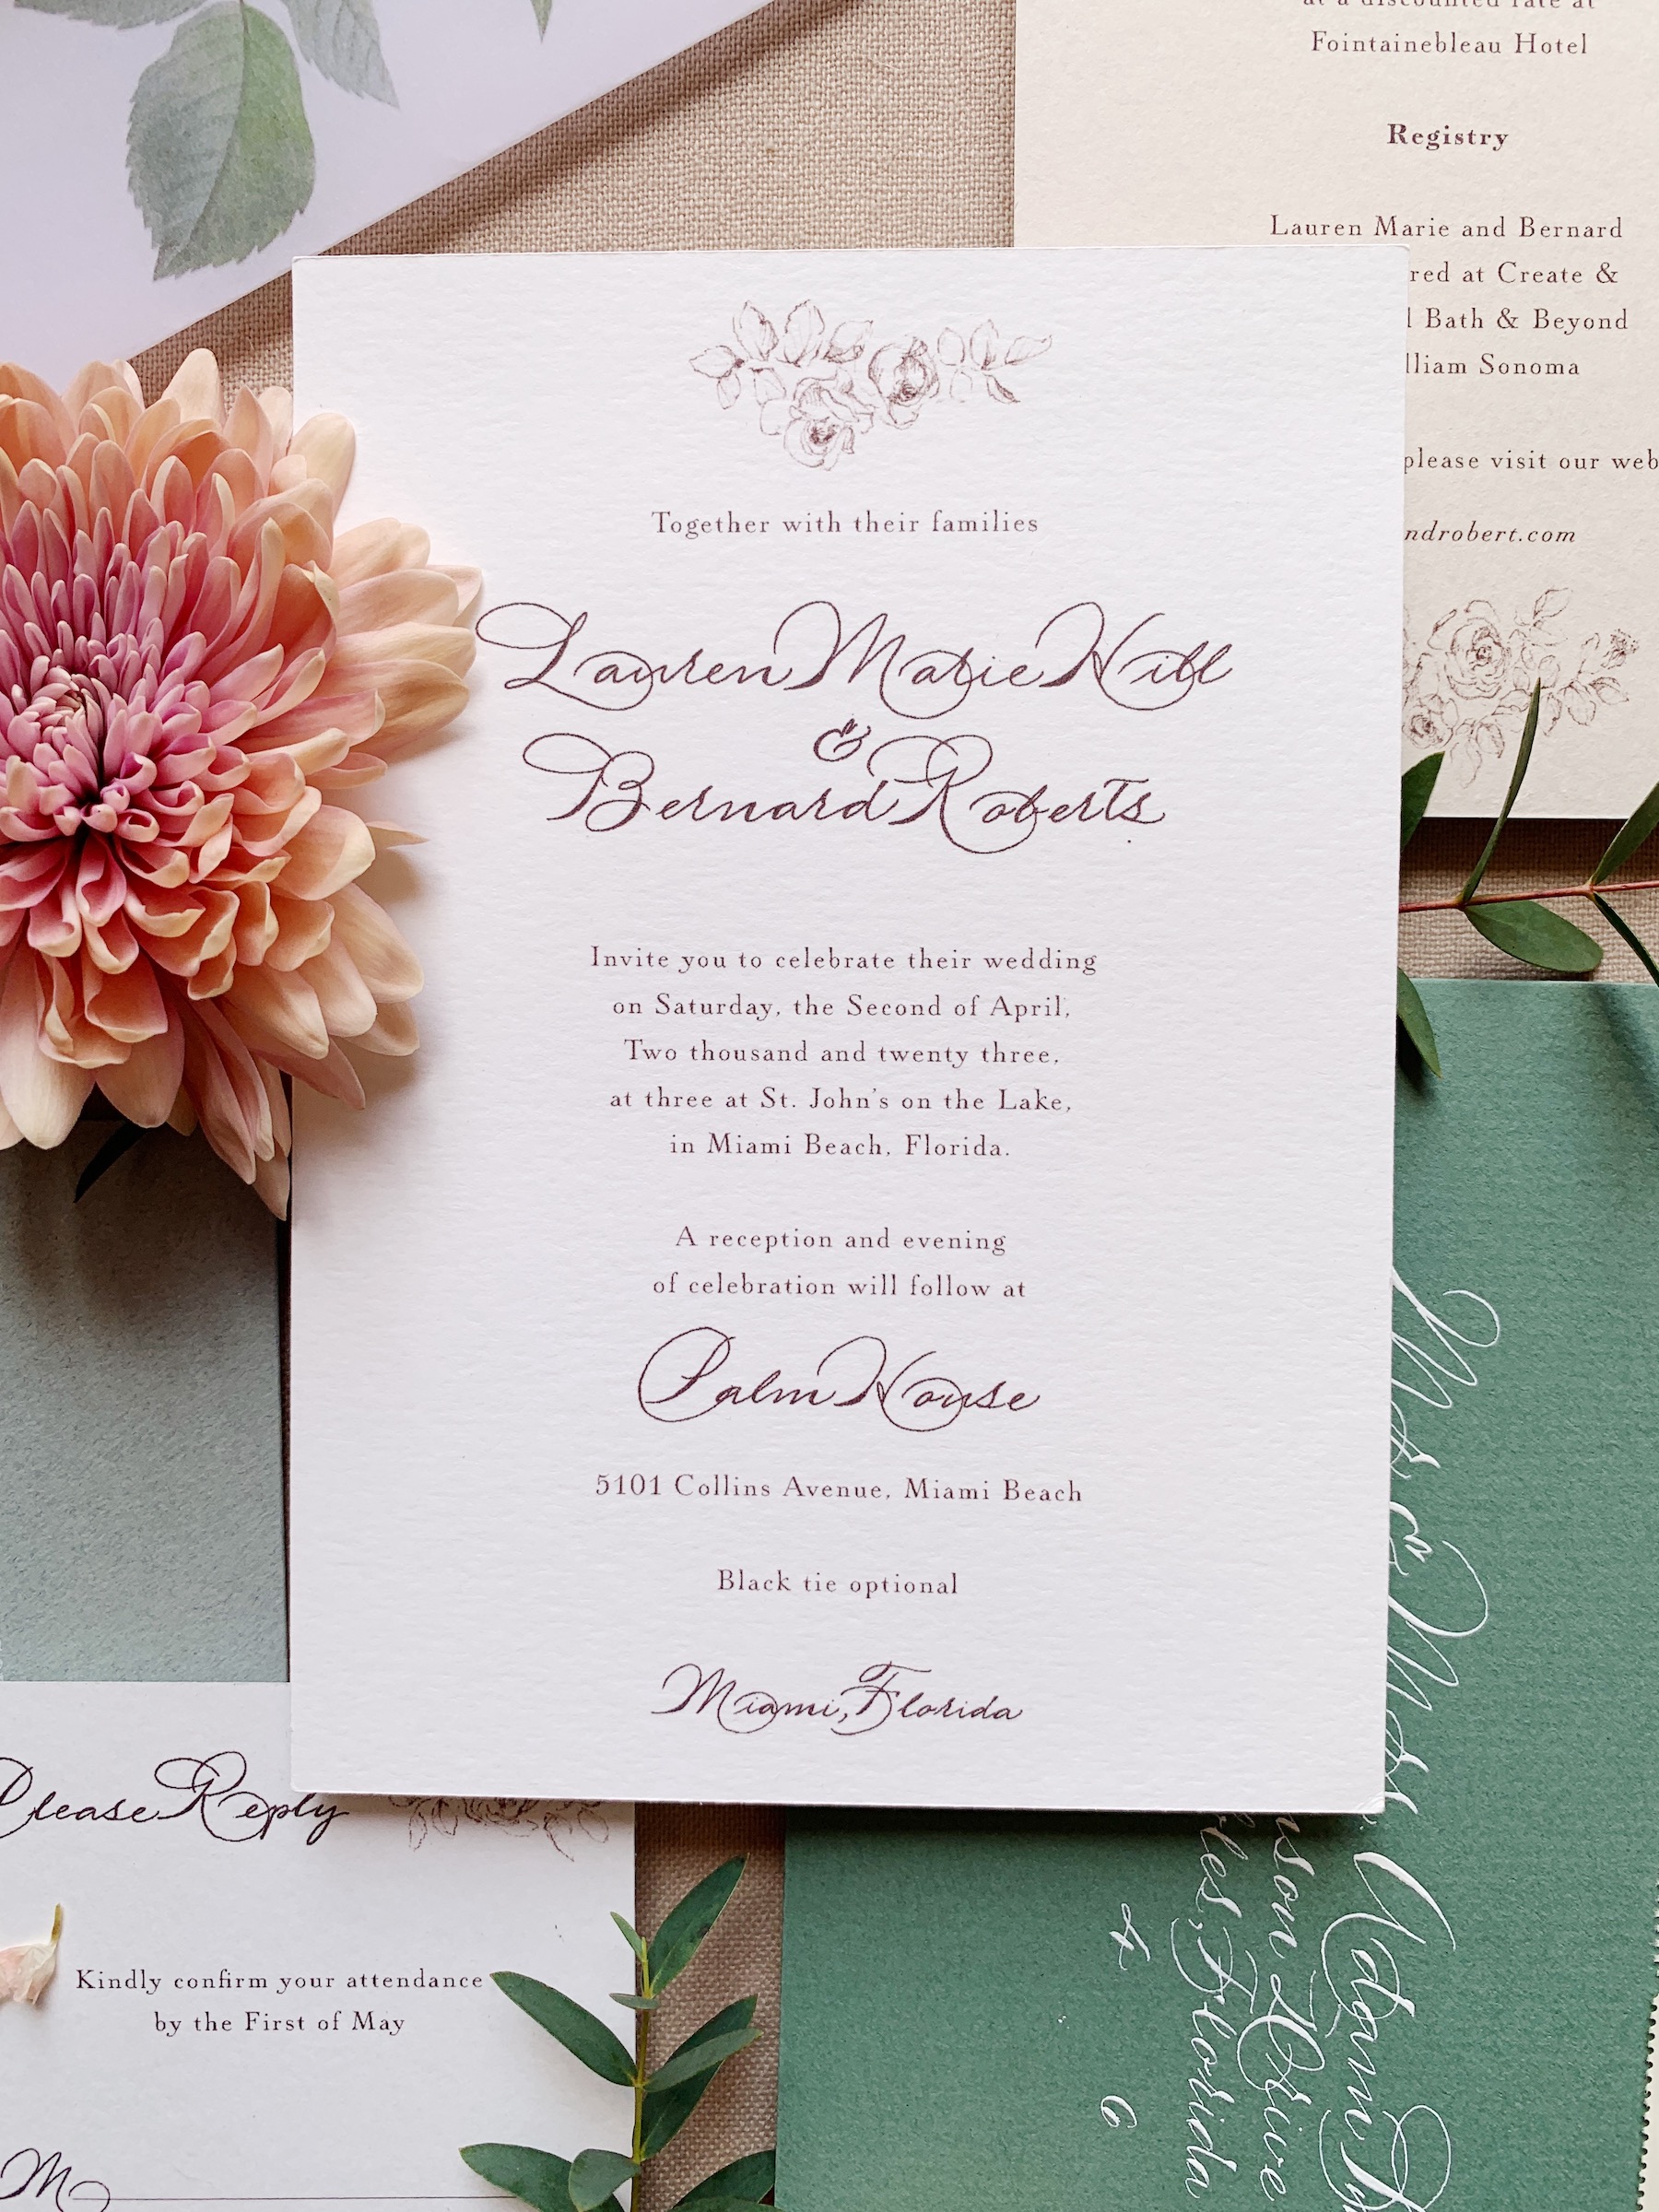 at a discounted rate at
Fointainebleau Hotel
Registry
Lauren Marie and Bernard
red at Create &
Bath & Beyond
lliam Sonoma
please visit our web
ndrobert.com
Together with their families
Lauren Marie Hill
&
Bernard Roberts
Invite you to celebrate their wedding
on Saturday, the Second of April,
Two thousand and twenty three,
at three at St. John's on the Lake,
in Miami Beach, Florida.
A reception and evening
of celebration will follow at
Palm House
5101 Collins Avenue, Miami Beach
Black tie optional
Miami, Florida
Please Reply
Kindly confirm your attendance
by the First of May
M
Mr & Mrs Adam
nson Drive
les, Florida
6